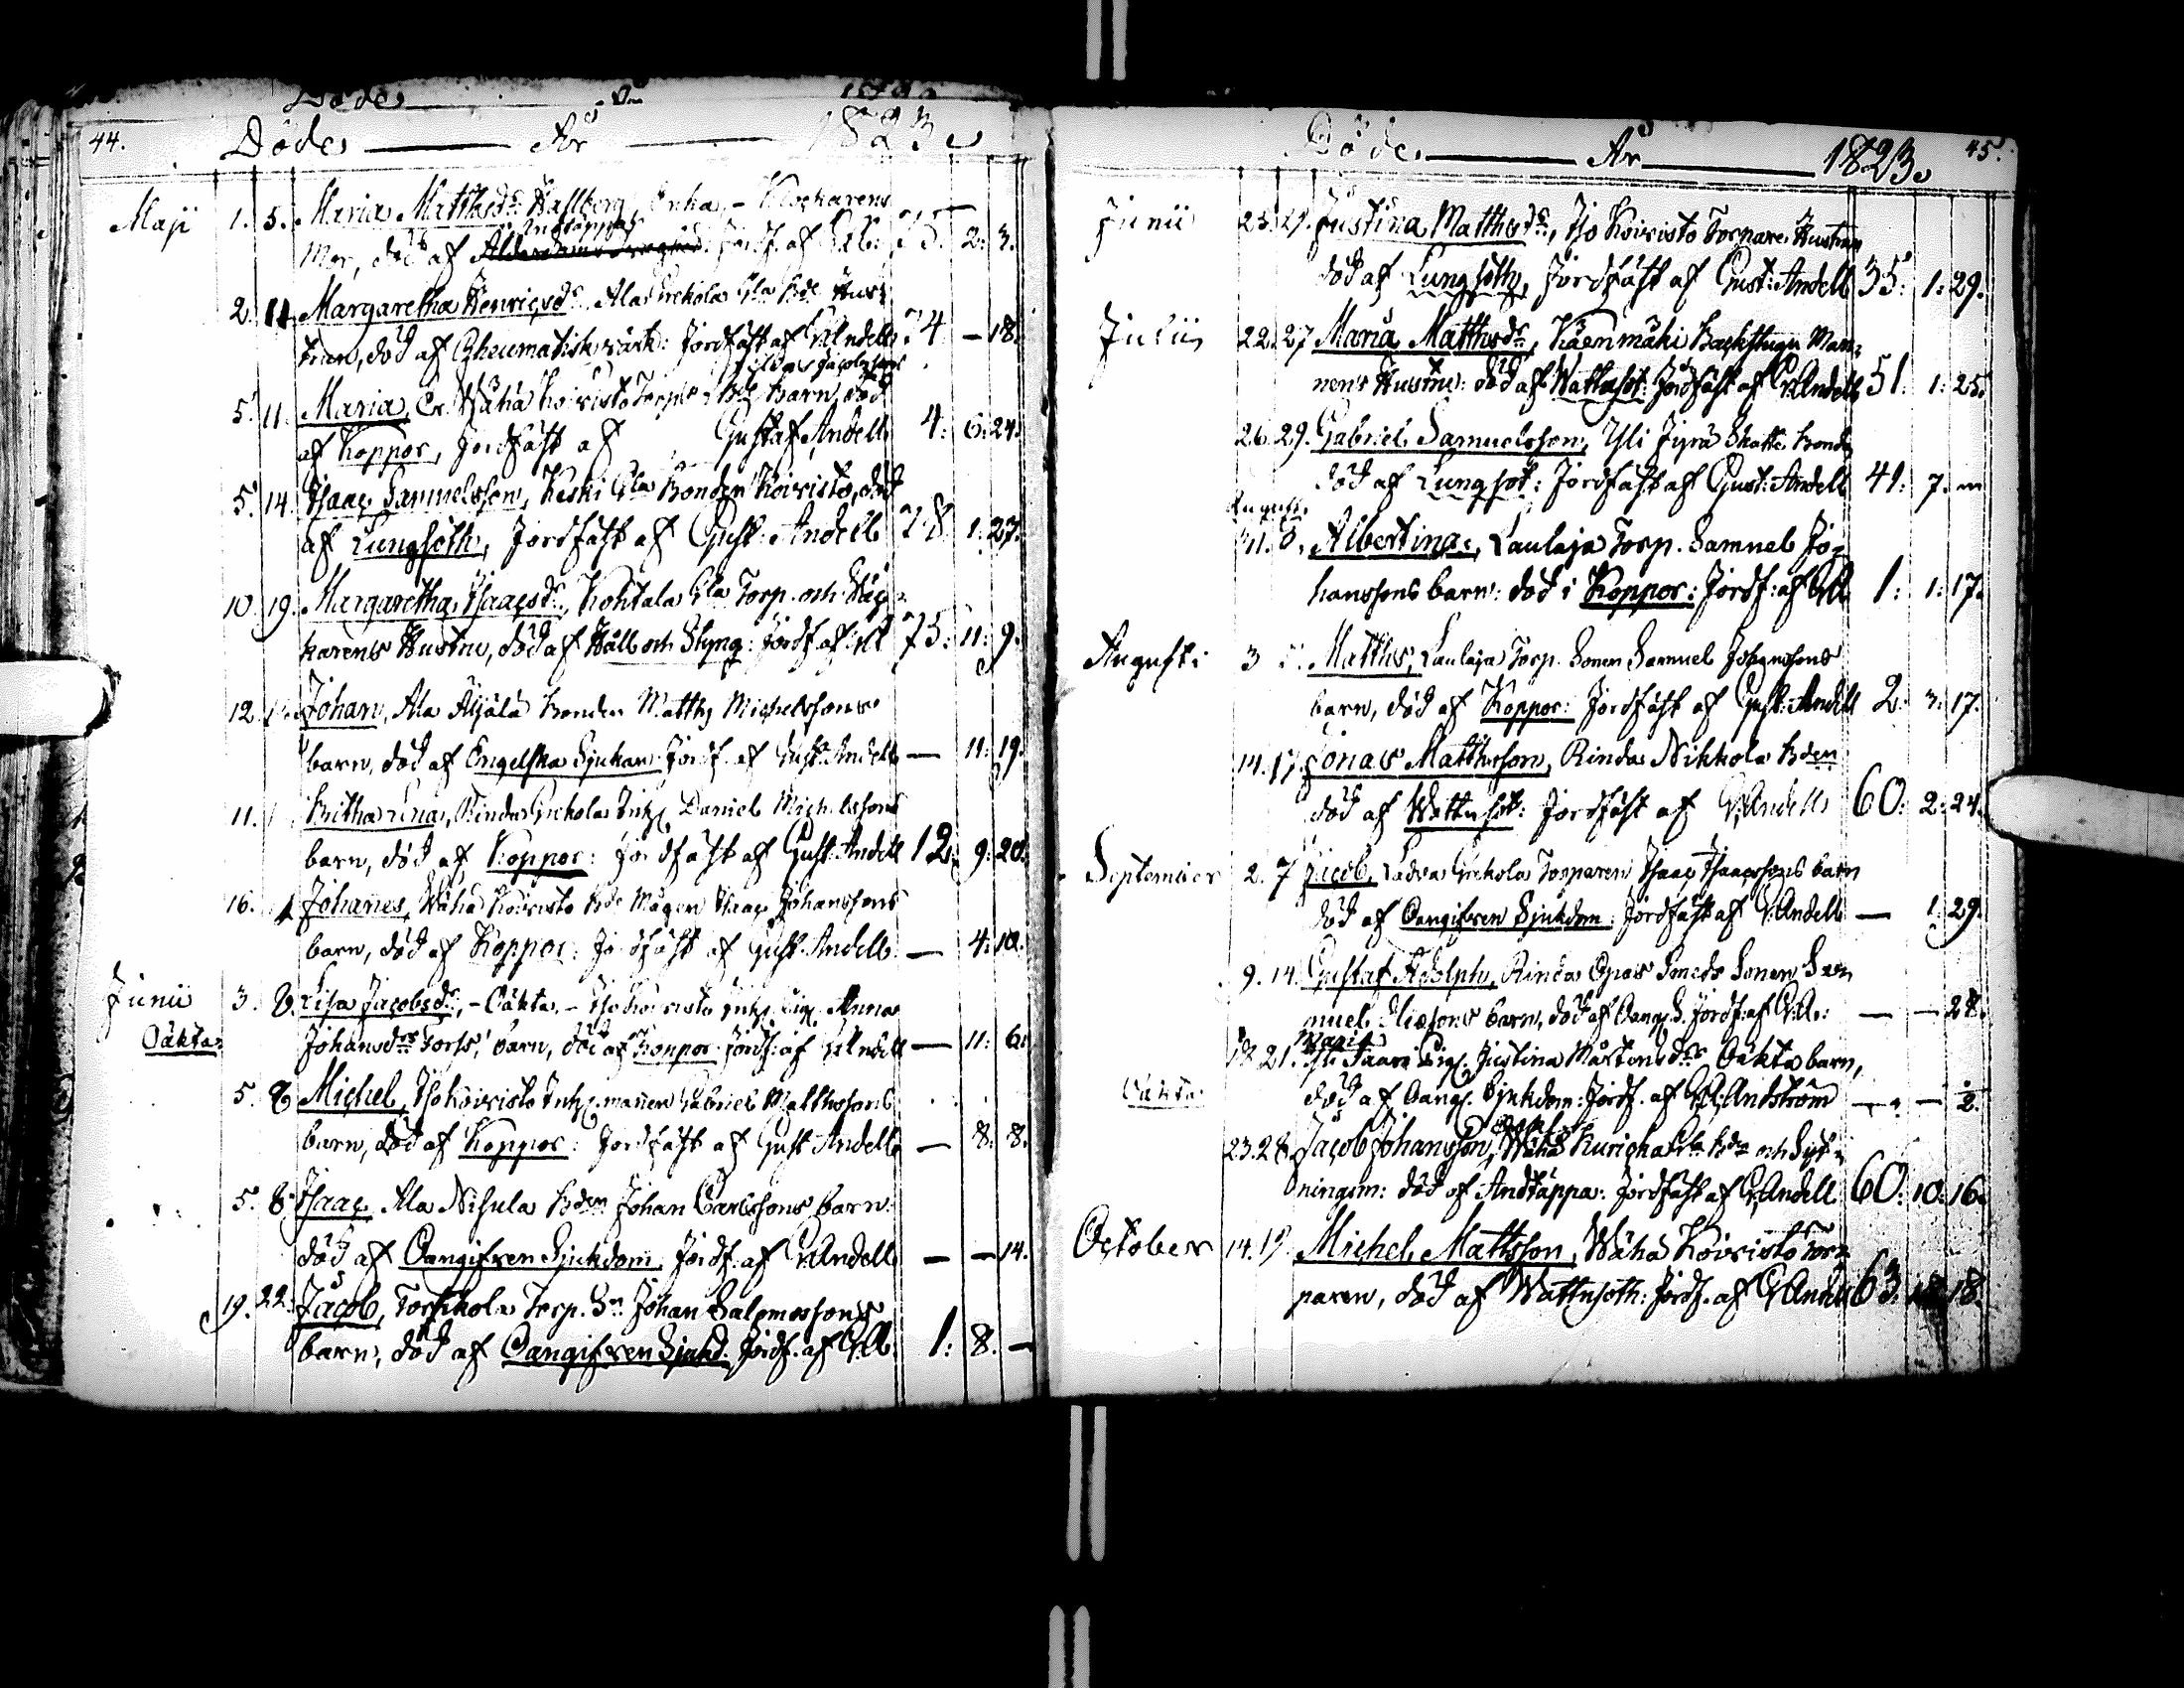 44.
Döde År 1823.
Maji 1. 5. Maria Matthsdr Hallberg, Enka, - Klockarens
Andtäppa
Mor, död af Jordf. af 75. 2. 3.
2. 11. Margaretha Henricsdr Ala Grekola Gla Bde Hus-
trun, död af Rheumatisk värk: Jordfäst af G. Andell 74 - 18.
5. 11. Maria, Wähä Koivisto Torp. barn, död
af Koppor, Jordfäst af Gustaf Andell 4. 6. 24.
5. 14. Isaac Samuelsson, Keski Gla Bonden Koivisto, död
af Lungsoth, Jordfäst af Gust. Andell 78 1. 27.
10. 19. Margaretha Isaacsdr, Kohtala Gla Torp. och
karens Hustru, död af Håll och Styng: Jordf. af GA 75. 11. 9.
12. Johan, Ala Äijälä bonden Matths Michelssons
barn, död af Engelska Sjukan: Jordf. af Gust. Andell — 11. 19.
11. Britha Lena, Rinda Grekola Inh. Daniel Michelssons
barn, död af Koppor: Jordfäst af Gust. Andell 12. 9. 20.
16. Johanes, Wähä Koivisto Bde Mågen Isaac Johanssons
barn, död af Koppor: Jordfäst af Gust. Andell — 4. 10.
Junii 3. 8. Lisa Jacobsdr, - Oäkta, - Iso Koivisto Inh. Pig. Anna
Oäkta Johansdrs Torss, barn, död af Koppor: Jordf: af G. Andell — 11. 6.
5. 8 Michel, Iso Koivisto Inh. mannen Gabriel Matthssons
barn, död af Koppor: Jordfäst af Gust Andell — 8. 8.
5. 8. Isaac Ala Nisula Bden Johan Carlssons barn
död af Oangifven Sjukdom, Jordf. af G. Andell — — 14.
19. 22. Jacob, Torkkola Torp. Sn Johan Salomossons
barn, död af Oangifven Sjukd. Jordf. af G.A. 1. 8. —
45.
Döde År 1823.
Junii 25. 29. Justina Matthsdr, Iso Koivisto Torpare Hustrun
död af Lungsoth, Jordfäst af Gust: Andell 35. 1. 29.
Julii 22. 27 Maria Matthsdr, Käenmäki Backstugu Man-
nens Hustru: död af Wattusot: Jordfäst af G. Andell 51. 1. 25.
26. 29. Gabriel Samuelsson, Yli Jyrä Skatte bonde
död af Lungsot: Jordfäst af Gust: Andell 41. 7.
Augusti
Albertina, Laulaja Torp. Samuel Jo-
hanssons barn: död i Koppor: Jordf: af GA 1. 1. 17.
Augusti 3 Matths, Laulaja Torp. Sonen Samuel Johanssons
barn, död af Koppor: Jordfäst af Gust: Andell 2. 3. 17.
14. 17. Jonas Matthsson, Rinda Nikkola Bden
död af Wattusot: Jordfäst af G. Andell 60. 2. 24.
September 2. 7 Jacob, Ladva Grekola Torparen Isaac Isaacssons barn
död af Oangifven Sjukdom: Jordfäst af G. Andell — 1. 29.
9. 14. Gustaf Adolph, Rinda Smeds Sonen Sam
muel Eliassons barn, död af Oang. S. Jordf: af G.A: — — 28.
Maria
21. Yli Saari Pig. Justina Mårtensdrs Oäkta barn,
Oäkta död af Oang. Sjukdom: Jordf. af Andström — — 2.
23. 28. Jacob Johansson, Wähä Kuricka Gla Bde och Syt-
ningsm: död af Andtäppa: Jordfäst af G. Andell 60. 10. 16.
October 14. 19. Michel Mattsson, Wähä Koivisto Tor-
paren, död af Wattusoth: Jordf. af G. Andell 63. 18.